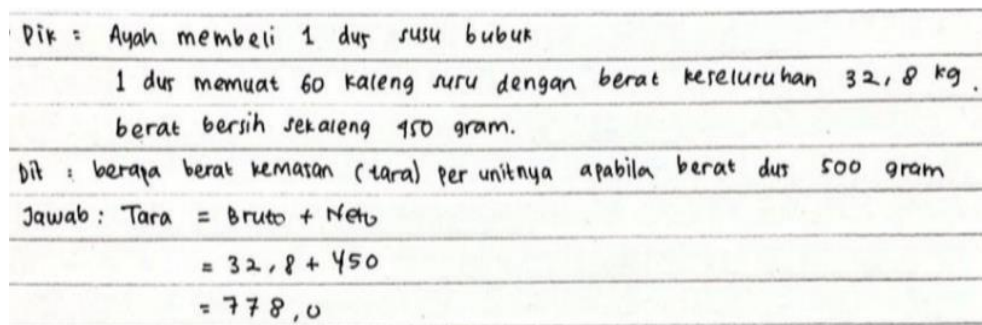 Dik = Ayah membeli 1 dus susu bubuk
1 dus memuat 60 kaleng susu dengan berat keseluruhan 32,8 kg.
berat bersih sekaleng 450 gram.
Dit : berapa berat kemasan (tara) per unitnya apabila berat dus 500 gram
Jawab : Tara = Bruto + Neto
= 32,8 + 450
= 778,0